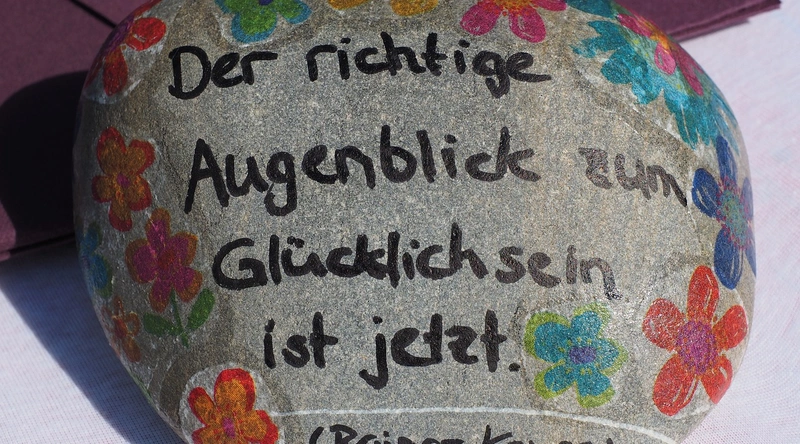 Der richtige
Augenblick zum
Glücklichsein
ist jetzt.